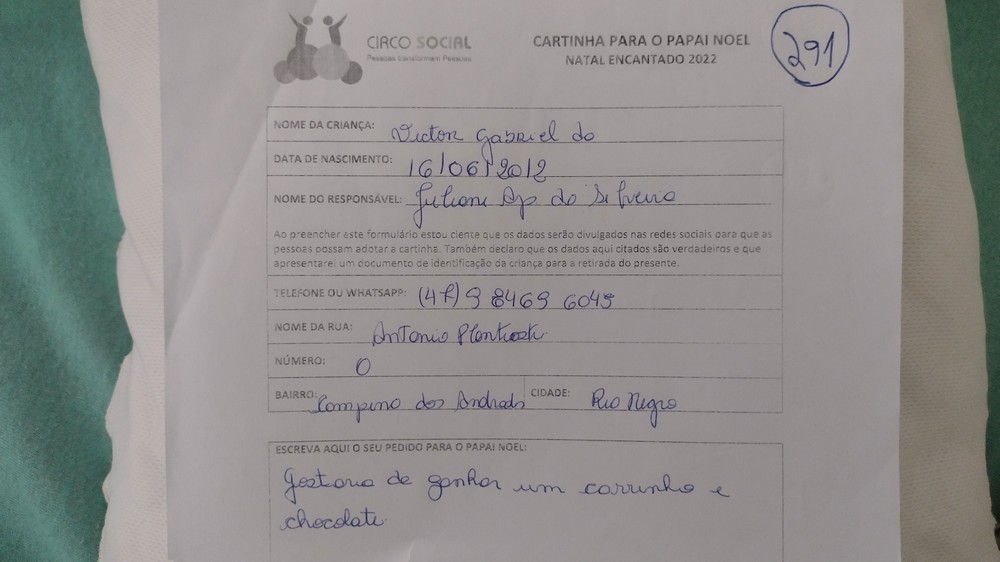 CIRCO SOCIAL
Pessoas transformam Pessoas
CARTINHA PARA O PAPAI NOEL
NATAL ENCANTADO 2022
291
NOME DA CRIANÇA: Victor Gabriel do
DATA DE NASCIMENTO: 16/06/2012
NOME DO RESPONSÁVEL: Juliana Ap. da Silveira
Ao preencher este formulário estou ciente que os dados serão divulgados nas redes sociais para que as
pessoas possam adotar a cartinha. Também declaro que os dados aqui citados são verdadeiros e que
apresentarei um documento de identificação da criança para a retirada do presente.
TELEFONE OU WHATSAPP: (47) 9 8469 6045
NOME DA RUA: Antonio
NÚMERO: 0
BAIRRO: Campina dos Andrads CIDADE: Rio Negro
ESCREVA AQUI O SEU PEDIDO PARA O PAPAI NOEL:
Gostaria de ganhar um carrinho e
chocolate